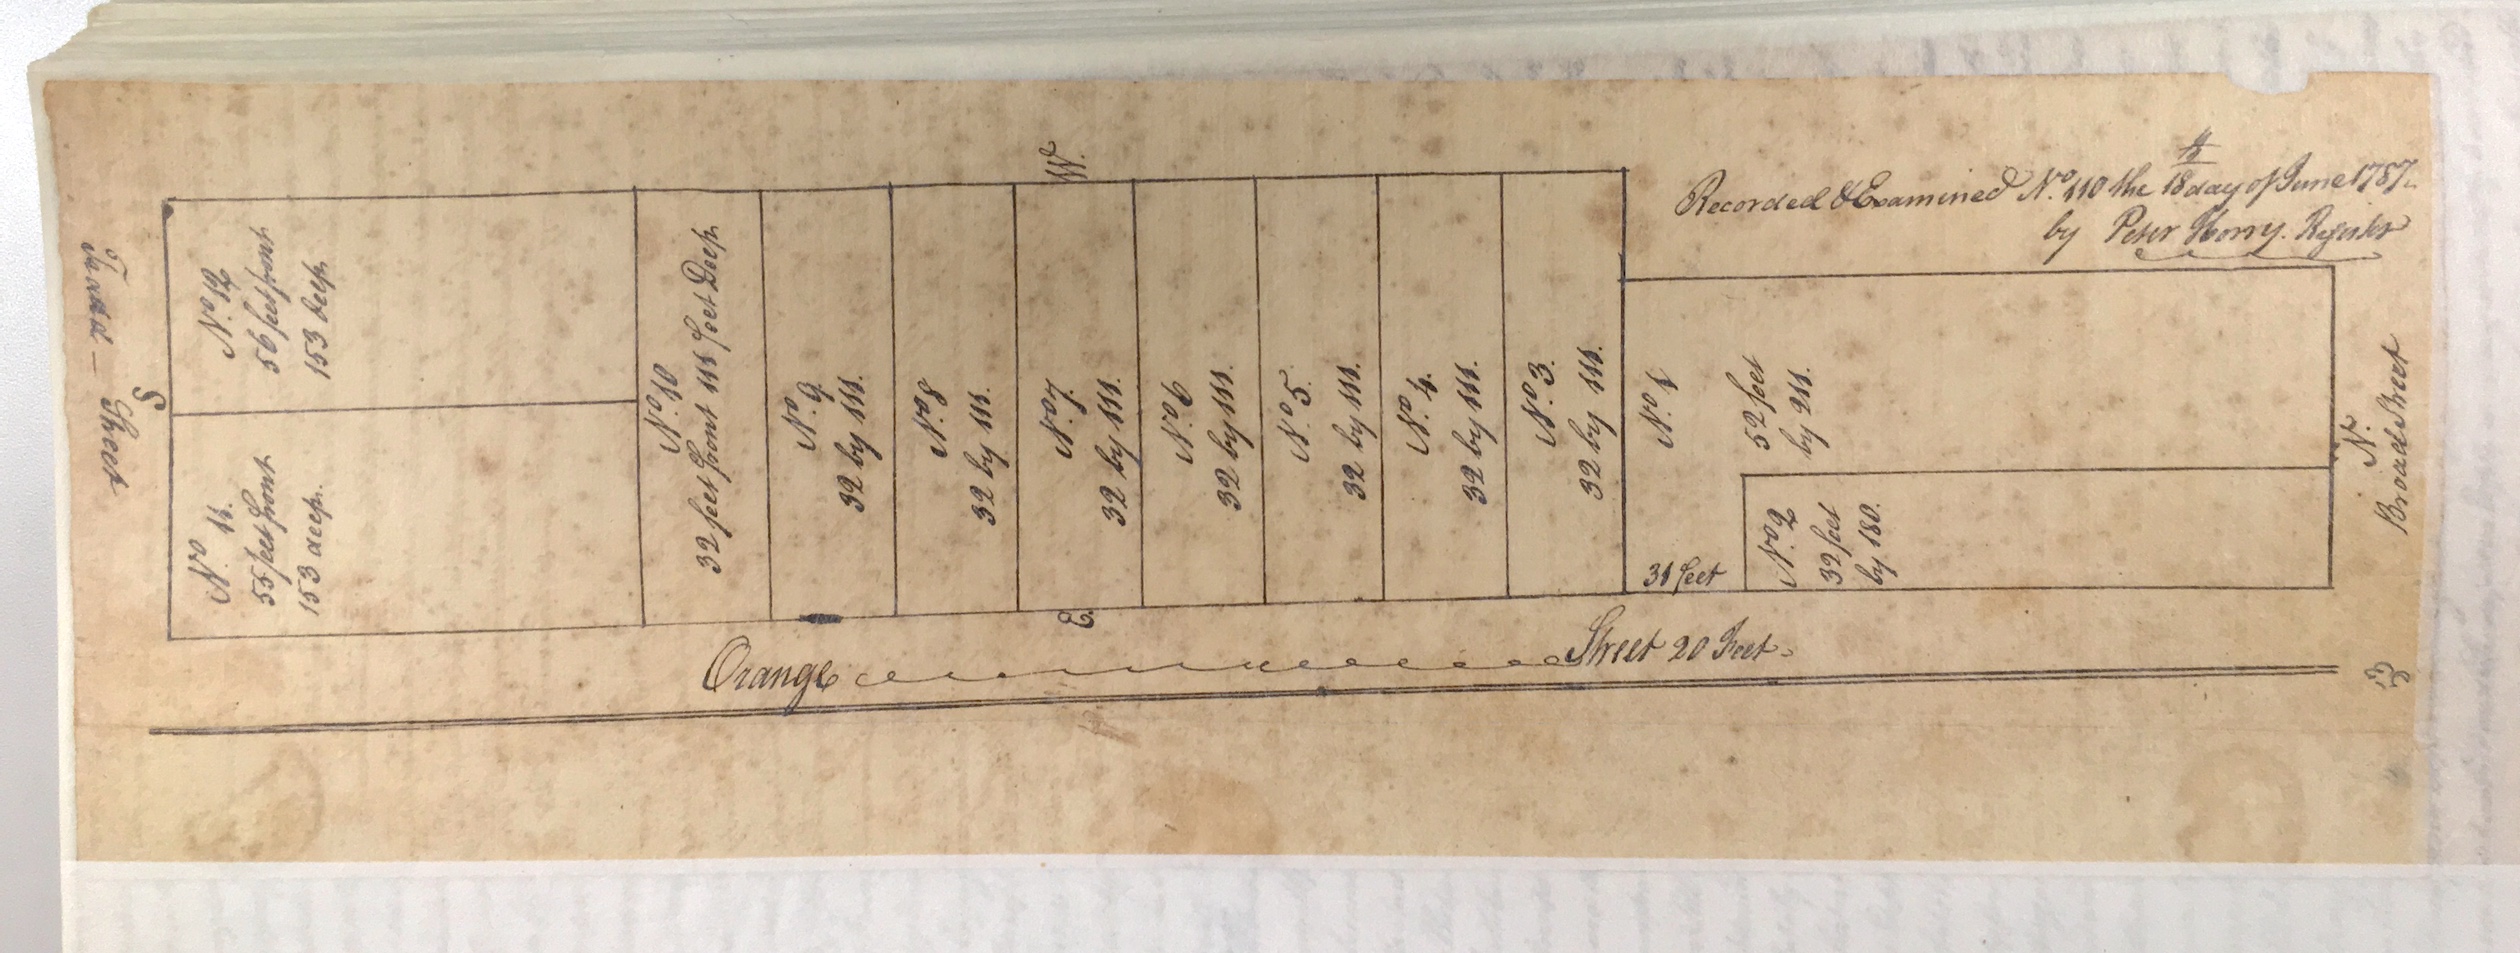 Recorded & Examined No. 110 the 18th day of June 1787.
by Peter Horry. Register
W.
Tradd - Street
S
No. 12
56 feet front
153 deep.
No. 11.
55 feet front
153 deep.
No. 10
32 feet front 111 feet Deep.
No. 9.
32 by 111.
No. 8
32 by 111.
No. 7.
32 by 111.
No. 6
32 by 111.
No. 5.
32 by 111.
No. 4.
32 by 111.
No. 3.
32 by 111.
No. 1
52 feet
by 211.
31 feet
No. 2
32 feet
by 180.
N.
Broad Street
E
Orange Street 20 Feet